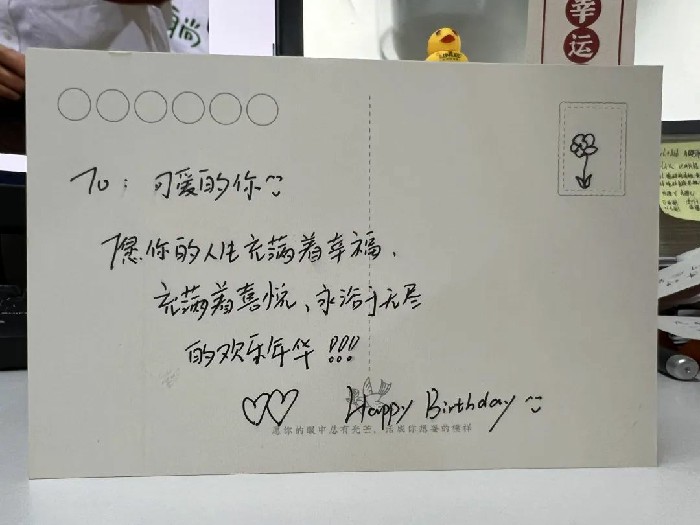 尚
幸
运
To: 可爱的你
愿你的人生充满着幸福、
充满着喜悦、永浴于无尽
的欢乐年华!!!
Happy Birthday
愿你的眼中总有光芒，活成你想要的模样